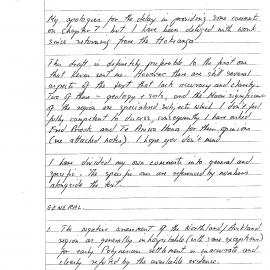 My apologies for the delay in providing some comments
on chapter 7 but I have been deluged with work
since returning from the Hokianga.
This draft is definitely preferable to the first one
that Kevin sent me. However there are still several
aspects of the text that lack accuracy and clarity.
Two of these - geology + soils, and the Maori significance
of the region are specialised subjects which I don't feel
fully competent to discuss, consequently I have asked
Fred Brook and Te Aniwa Hona for their opinions
(see attached notes). I hope you don't mind
I have divided my own comments into general and
specific. The specific ones are referenced by numbers
alongside the text.
GENERAL.
1. The negative assessment of the Northland/Auckland
region as generally inhospitable (with some exceptions)
for early Polynesian settlement is inaccurate and
clearly refuted by the available evidence.